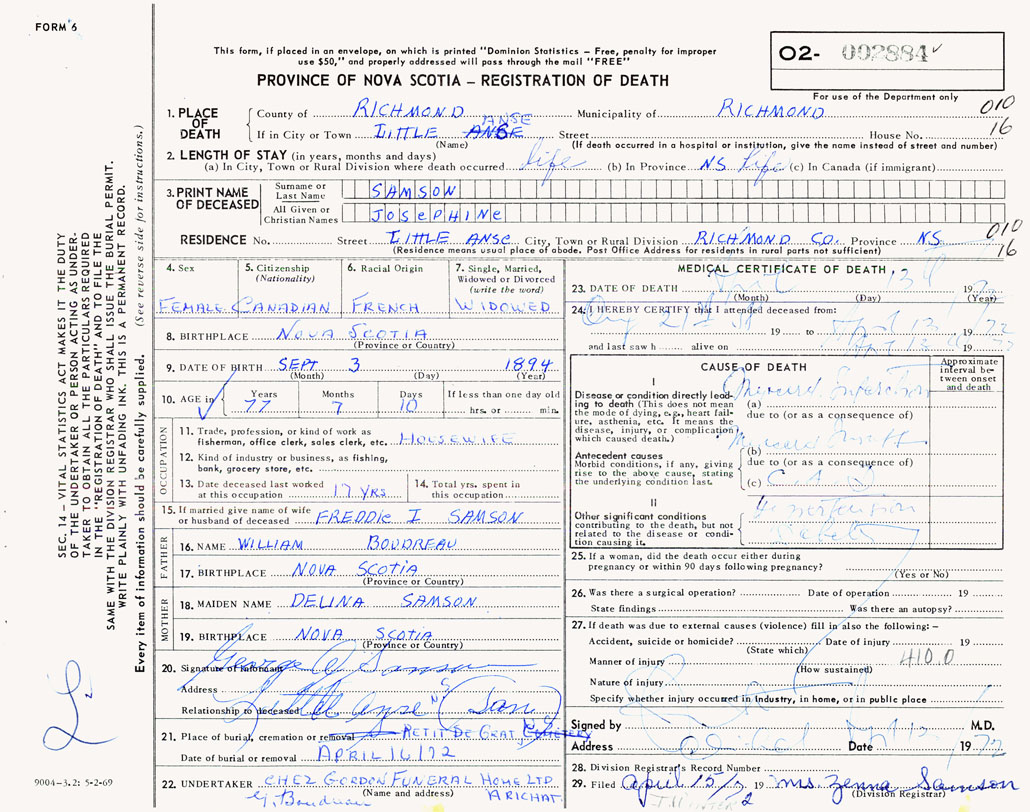 FORM 6
This form, if placed in an envelope, on which is printed "Dominion Statistics – Free, penalty for improper
use $50," and properly addressed will pass through the mail "FREE"
PROVINCE OF NOVA SCOTIA – REGISTRATION OF DEATH
O2- 002884
For use of the Department only
010
16
1. PLACE OF DEATH
County of RICHMOND Municipality of RICHMOND
ANSE
If in City or Town LITTLE ANSE Street House No.
(Name) (If death occurred in a hospital or institution, give the name instead of street and number)
2. LENGTH OF STAY (in years, months and days)
(a) In City, Town or Rural Division where death occurred life (b) In Province NS life (c) In Canada (if immigrant)
3. PRINT NAME OF DECEASED
Surname or Last Name SAMSON
All Given or Christian Names JOSEPHINE
RESIDENCE No. Street LITTLE ANSE City, Town or Rural Division RICHMOND CO. Province NS
(Residence means usual place of abode. Post Office Address for residents in rural parts not sufficient)
010
16
4. Sex FEMALE
5. Citizenship (Nationality) CANADIAN
6. Racial Origin FRENCH
7. Single, Married, Widowed or Divorced (write the word) WIDOWED
8. BIRTHPLACE NOVA SCOTIA
(Province or Country)
9. DATE OF BIRTH SEPT 3 1894
(Month) (Day) (Year)
10. AGE in Years Months Days If less than one day old
77 7 10 hrs. or min.
OCCUPATION
11. Trade, profession, or kind of work as
fisherman, office clerk, sales clerk, etc. HOUSEWIFE
12. Kind of industry or business, as fishing,
bank, grocery store, etc.
13. Date deceased last worked at this occupation 17 YRS
14. Total yrs. spent in this occupation
15. If married give name of wife
or husband of deceased FREDDIE I SAMSON
FATHER
16. NAME WILLIAM BOUDREAU
17. BIRTHPLACE NOVA SCOTIA
(Province or Country)
MOTHER
18. MAIDEN NAME DELINA SAMSON
19. BIRTHPLACE NOVA SCOTIA
(Province or Country)
20. Signature of Informant George Samson
Address Little Anse NS
Relationship to deceased (Son)
21. Place of burial, cremation or removal PETIT DE GRAT CEMETERY
Date of burial or removal APRIL 16/72
22. UNDERTAKER CHEZ GORDON FUNERAL HOME LTD
(Name and address) ARICHAT.
G. Boudreau
MEDICAL CERTIFICATE OF DEATH
23. DATE OF DEATH April 13 1972
(Month) (Day) (Year)
24. I HEREBY CERTIFY that I attended deceased from:
19 to April 13 1972
and last saw h alive on April 13 19
CAUSE OF DEATH
Approximate interval between onset and death
I
Disease or condition directly leading to death (This does not mean
the mode of dying, e.g., heart failure, asthenia, etc. It means the
disease, injury, or complication
which caused death.)
(a) Infarction
due to (or as a consequence of)
Antecedent causes
Morbid conditions, if any, giving
rise to the above cause, stating
the underlying condition last.
(b)
due to (or as a consequence of)
(c)
II
Other significant conditions
contributing to the death, but not
related to the disease or condition causing it.
Hypertension
Diabetes
25. If a woman, did the death occur either during
pregnancy or within 90 days following pregnancy?
(Yes or No)
26. Was there a surgical operation? Date of operation 19
State findings Was there an autopsy?
27. If death was due to external causes (violence) fill in also the following: –
Accident, suicide or homicide? Date of injury 19
(State which)
Manner of injury 410.0
(How sustained)
Nature of injury
Specify whether injury occurred in industry, in home, or in public place
Signed by M.D.
Address Arichat Date April 1972
28. Division Registrar's Record Number
29. Filed april 15/72 19 mrs. Zenna Samson
(Division Registrar)
SEC. 14 – VITAL STATISTICS ACT MAKES IT THE DUTY
OF THE UNDERTAKER OR PERSON ACTING AS UNDER-
TAKER TO OBTAIN ALL THE PARTICULARS REQUIRED
IN THE "REGISTRATION OF DEATH" AND TO FILE THE
SAME WITH THE DIVISION REGISTRAR WHO SHALL ISSUE THE BURIAL PERMIT.
WRITE PLAINLY WITH UNFADING INK. THIS IS A PERMANENT RECORD.
Every item of information should be carefully supplied. (See reverse side for instructions.)
9004-3.2: 5-2-69